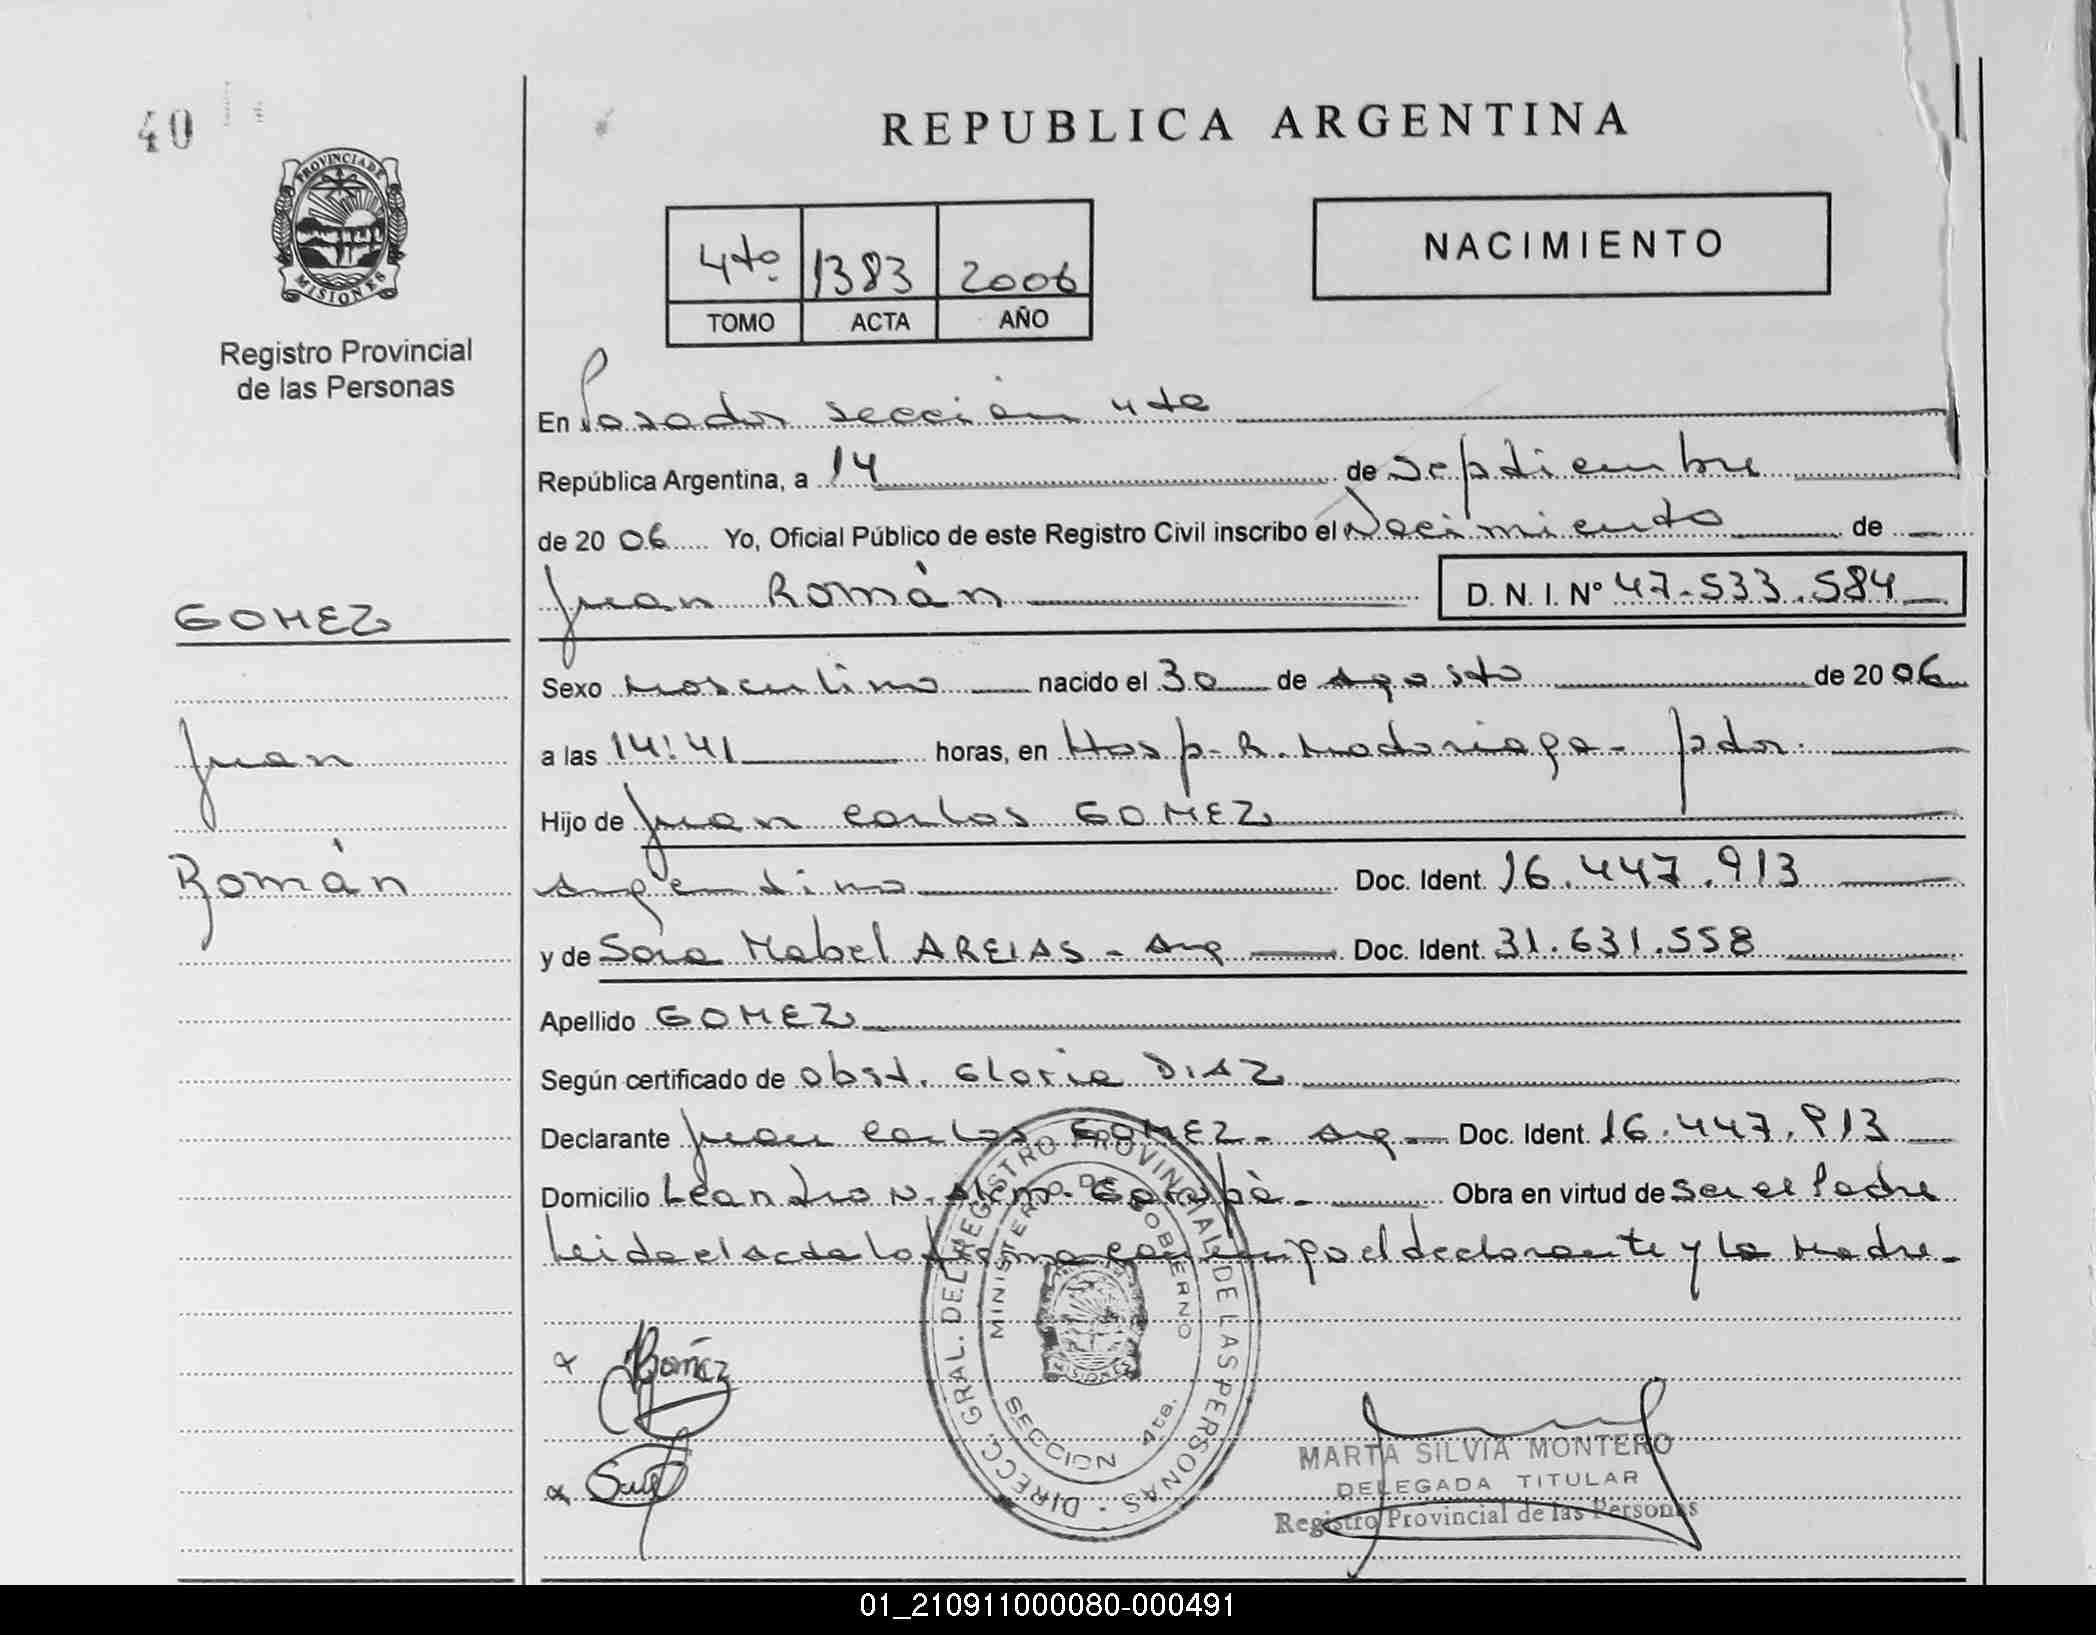 40
PROVINCIA DE
MISIONES
Registro Provincial
de las Personas
REPUBLICA ARGENTINA
4to 1383 2006
TOMO ACTA AÑO
NACIMIENTO
En Posadas sección 4ta
República Argentina, a 14 de Septiembre
de 2006 Yo, Oficial Público de este Registro Civil inscribo el Nacimiento de
Juan Román D. N. I. Nº 47.533.584
GOMEZ
Juan
Román
Sexo Masculino nacido el 30 de Agosto de 2006
a las 14:41 horas, en Hosp. R. Madariaga - Pdas.
Hijo de Juan Carlos GOMEZ
Argentino Doc. Ident. 16.447.913
y de Sara Mabel AREIAS - Arg Doc. Ident. 31.631.558
Apellido GOMEZ
Según certificado de Obst. Gloria DIAZ
Declarante Juan Carlos GOMEZ - Arg - Doc. Ident. 16.447.913
Domicilio Leandro N. Alem - Garupá - Obra en virtud de Ser el Padre
Leida el Acta la firma conmigo el declarante y la Madre.
DIRECC. GRAL. DEL REGISTRO PROVINCIAL DE LAS PERSONAS
MINISTERIO DE GOBIERNO
MISIONES
SECCION 4ta.
MARTA SILVIA MONTERO
DELEGADA TITULAR
Registro Provincial de las Personas
01_210911000080-000491